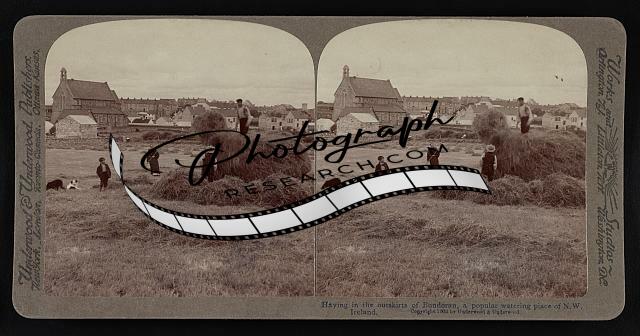 Underwood & Underwood, Publishers.
New York, London, Toronto-Canada, Ottawa-Kansas.
Works and Studios
Arlington, N.J. Washington, D.C.
Photograph
RESEARCH.COM
Haying in the outskirts of Bundoran, a popular watering place of N.W.
Ireland. Copyright 1903 by Underwood & Underwood.